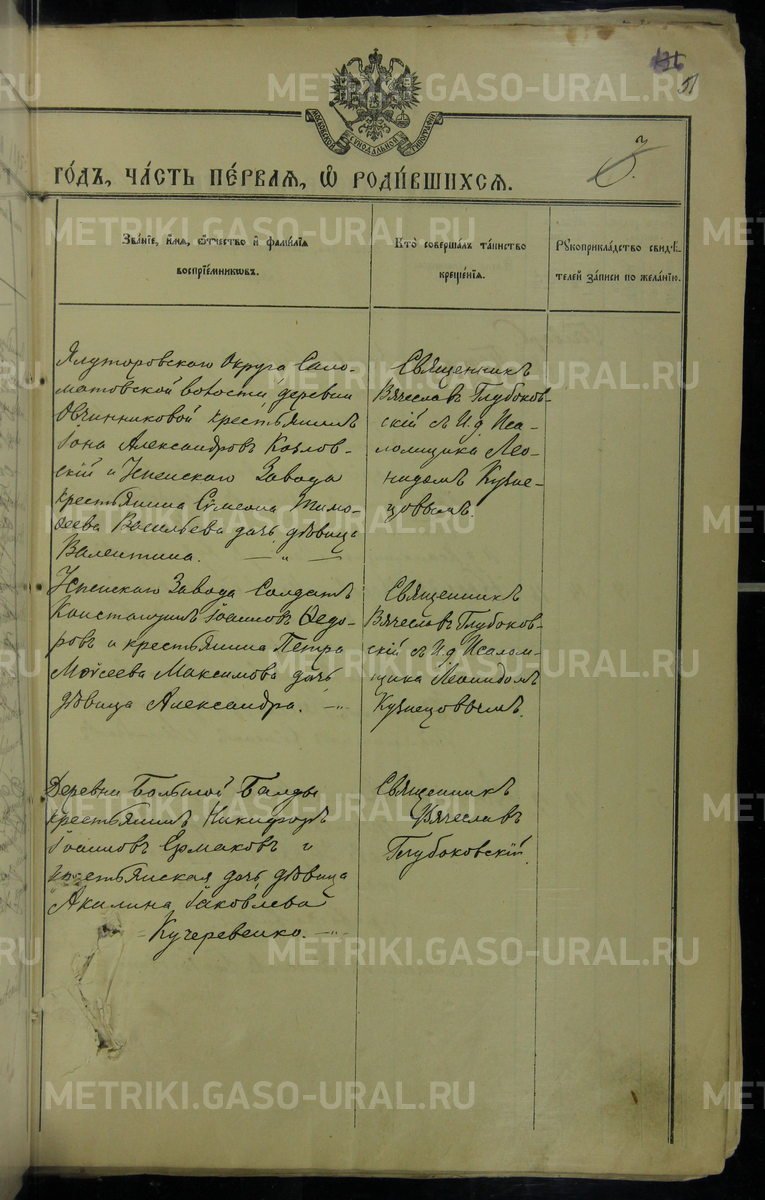 136
51
МОСКОВСКОЙ СѴНОДАЛЬНОЙ ТИПОГРАФІИ
3.
ГО́ДЪ, ЧА́СТЬ ПЕ́РВАЯ, Ѡ҆ РОДИ́ВШИХСЯ.
Зва́нїе, и҆́мѧ, ѻ҆́тчество и҆ фами́лїѧ
воспрїе́мникѡвъ.
Кто̀ соверша́лъ та́инство
креще́нїѧ.
Рꙋкоприкла́дство свидѣ́-
телей за́писи по жела́нїю.
Ялуторовскаго Округа Сало-
матовской волости деревни
Овчинниковой крестьянинъ
Іона Александровъ Козлов-
скій и Успенскаго Завода
крестьянина Сѵмеона Тимо-
ѳеева Васильева дочь дѣвица
Валентина. — „ —
Священникъ
Вячеславъ Глубоков-
скій съ И. д Пса-
ломщика Лео-
нидомъ Кузне-
цовымъ.
Успенскаго Завода Солдатъ
Константинъ Іоанновъ Ѳедо-
ровъ и крестьянина Петра
Моѵсеева Максимова дочь
дѣвица Александра. -„-
Священникъ
Вячеславъ Глубоков-
скій съ И. д Псалом-
щика Леонидомъ
Кузнецовымъ.
Деревни Большой Балды
крестьянинъ Никифоръ
Іоанновъ Ермаковъ и
крестьянская дочь дѣвица
Акилина Іаковлева
Кучеревенко. -„-
Священникъ
Вячеславъ
Глубоковскій.
METRIKI.GASO-URAL.RU